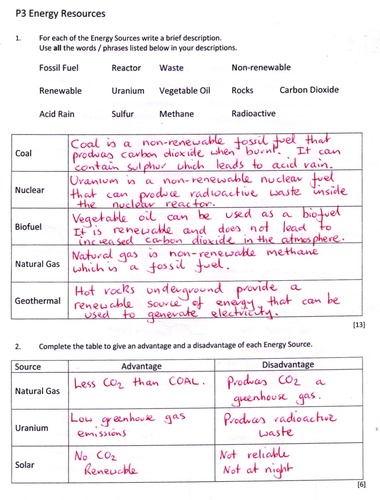 P3 Energy Resources
1. For each of the Energy Sources write a brief description.
Use all the words / phrases listed below in your descriptions.
Fossil Fuel Reactor Waste Non-renewable
Renewable Uranium Vegetable Oil Rocks Carbon Dioxide
Acid Rain Sulfur Methane Radioactive
Coal
Coal is a non-renewable fossil fuel that
produces carbon dioxide when burnt. It can
contain sulphur which leads to acid rain.
Nuclear
Uranium is a non-renewable nuclear fuel
that can produce radioactive waste inside
the nuclear reactor.
Biofuel
Vegetable oil can be used as a biofuel
It is renewable and does not lead to
increased carbon dioxide in the atmosphere.
Natural Gas
Natural gas is non-renewable methane
which is a fossil fuel.
Geothermal
Hot rocks underground provide a
renewable source of energy that can be
used to generate electricity.
[13]
2. Complete the table to give an advantage and a disadvantage of each Energy Source.
Source Advantage Disadvantage
Natural Gas
Less CO2 than COAL.
Produces CO2 a
greenhouse gas.
Uranium
Low greenhouse gas
emissions
Produces radioactive
waste
Solar
No CO2
Renewable
Not reliable
Not at night
[6]